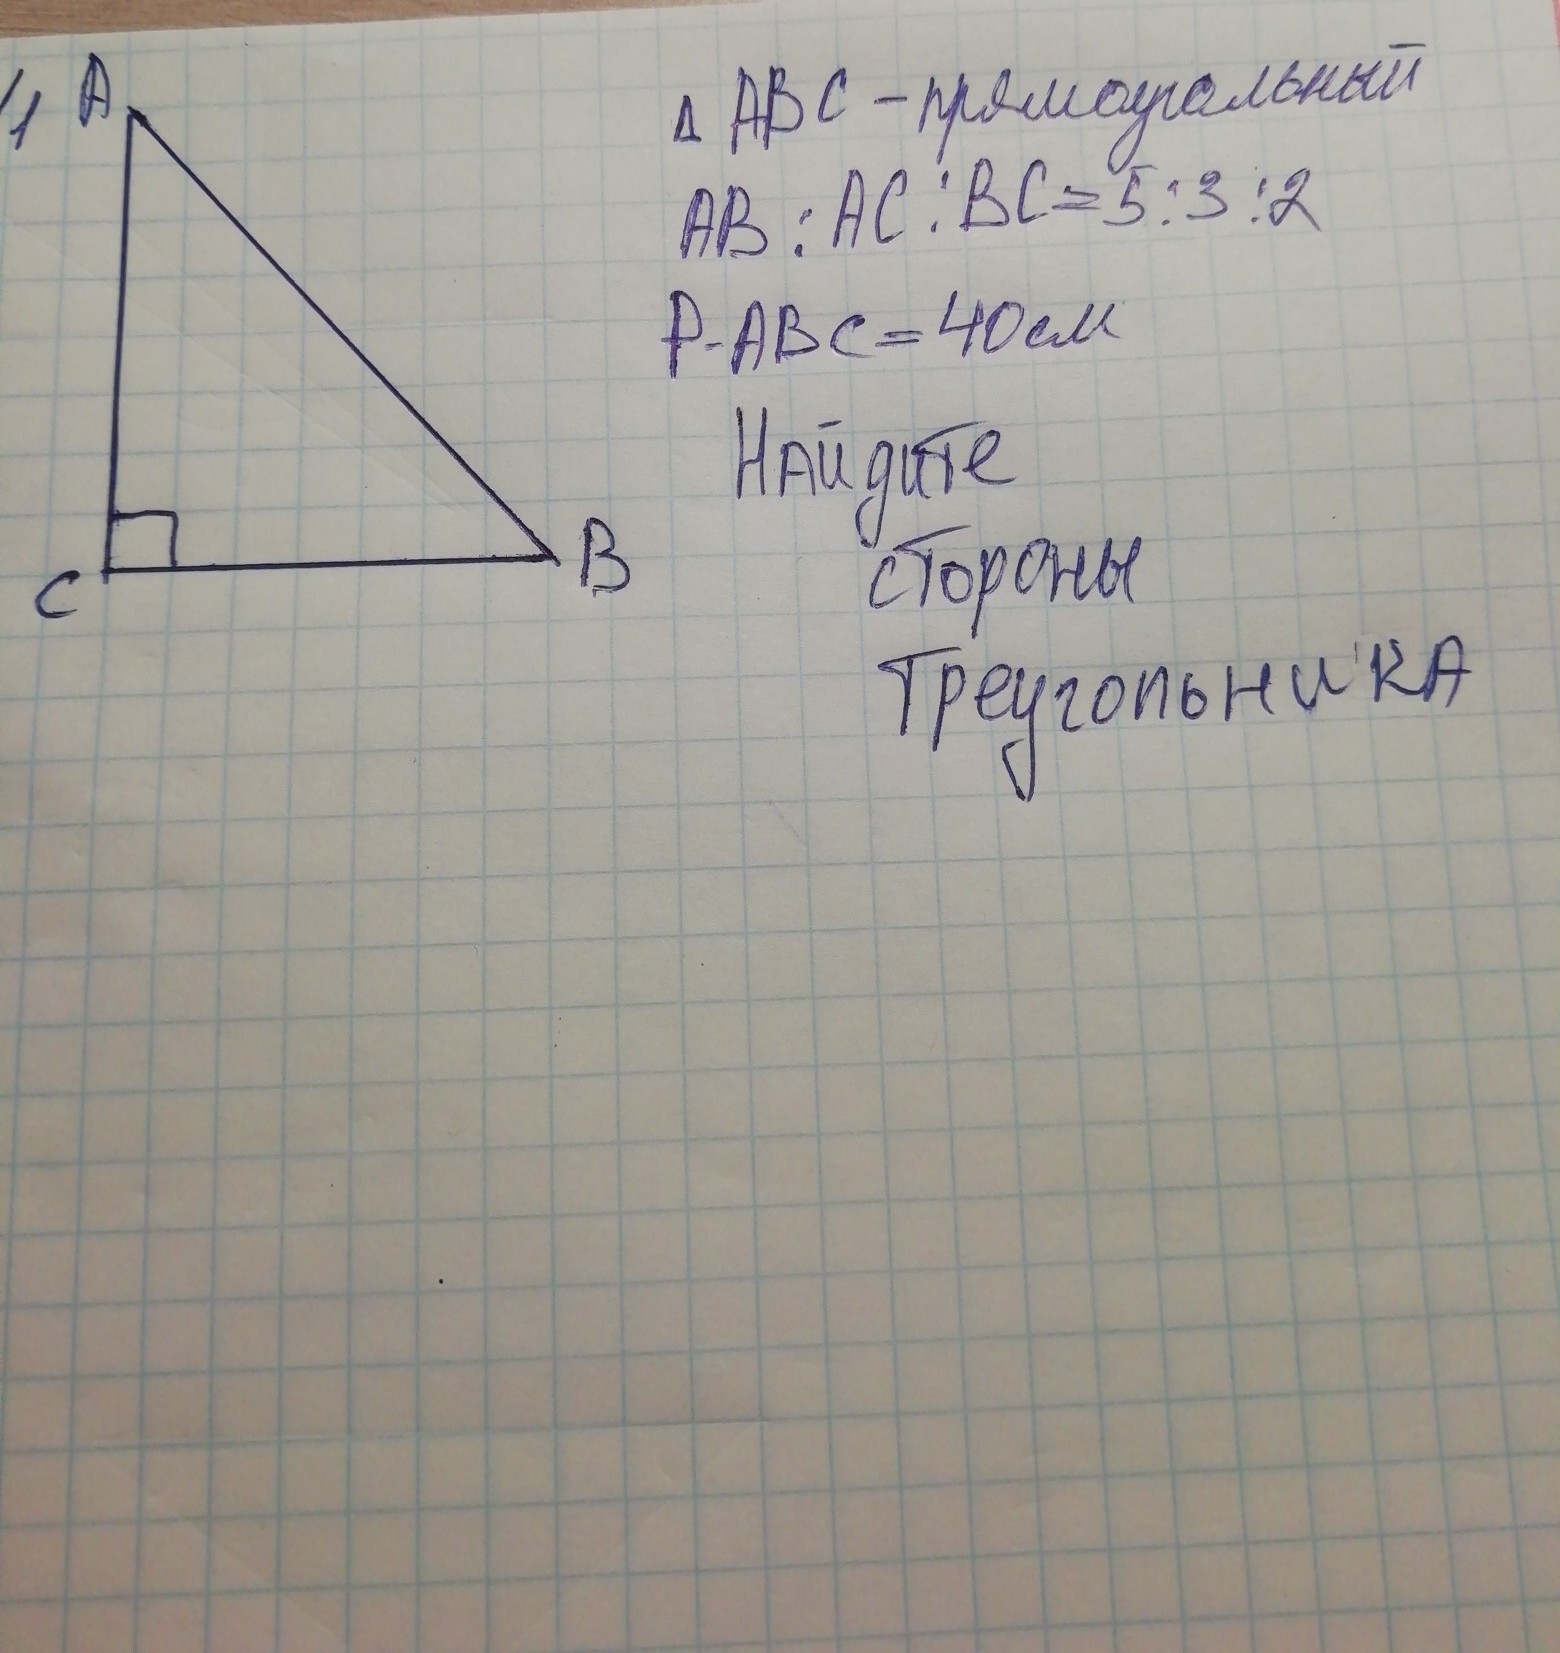 1 A
△ ABC - прямоугольный
AB : AC : BC = 5 : 3 : 2
P-ABC = 40 см
Найдите
стороны
Треугольника
C
B